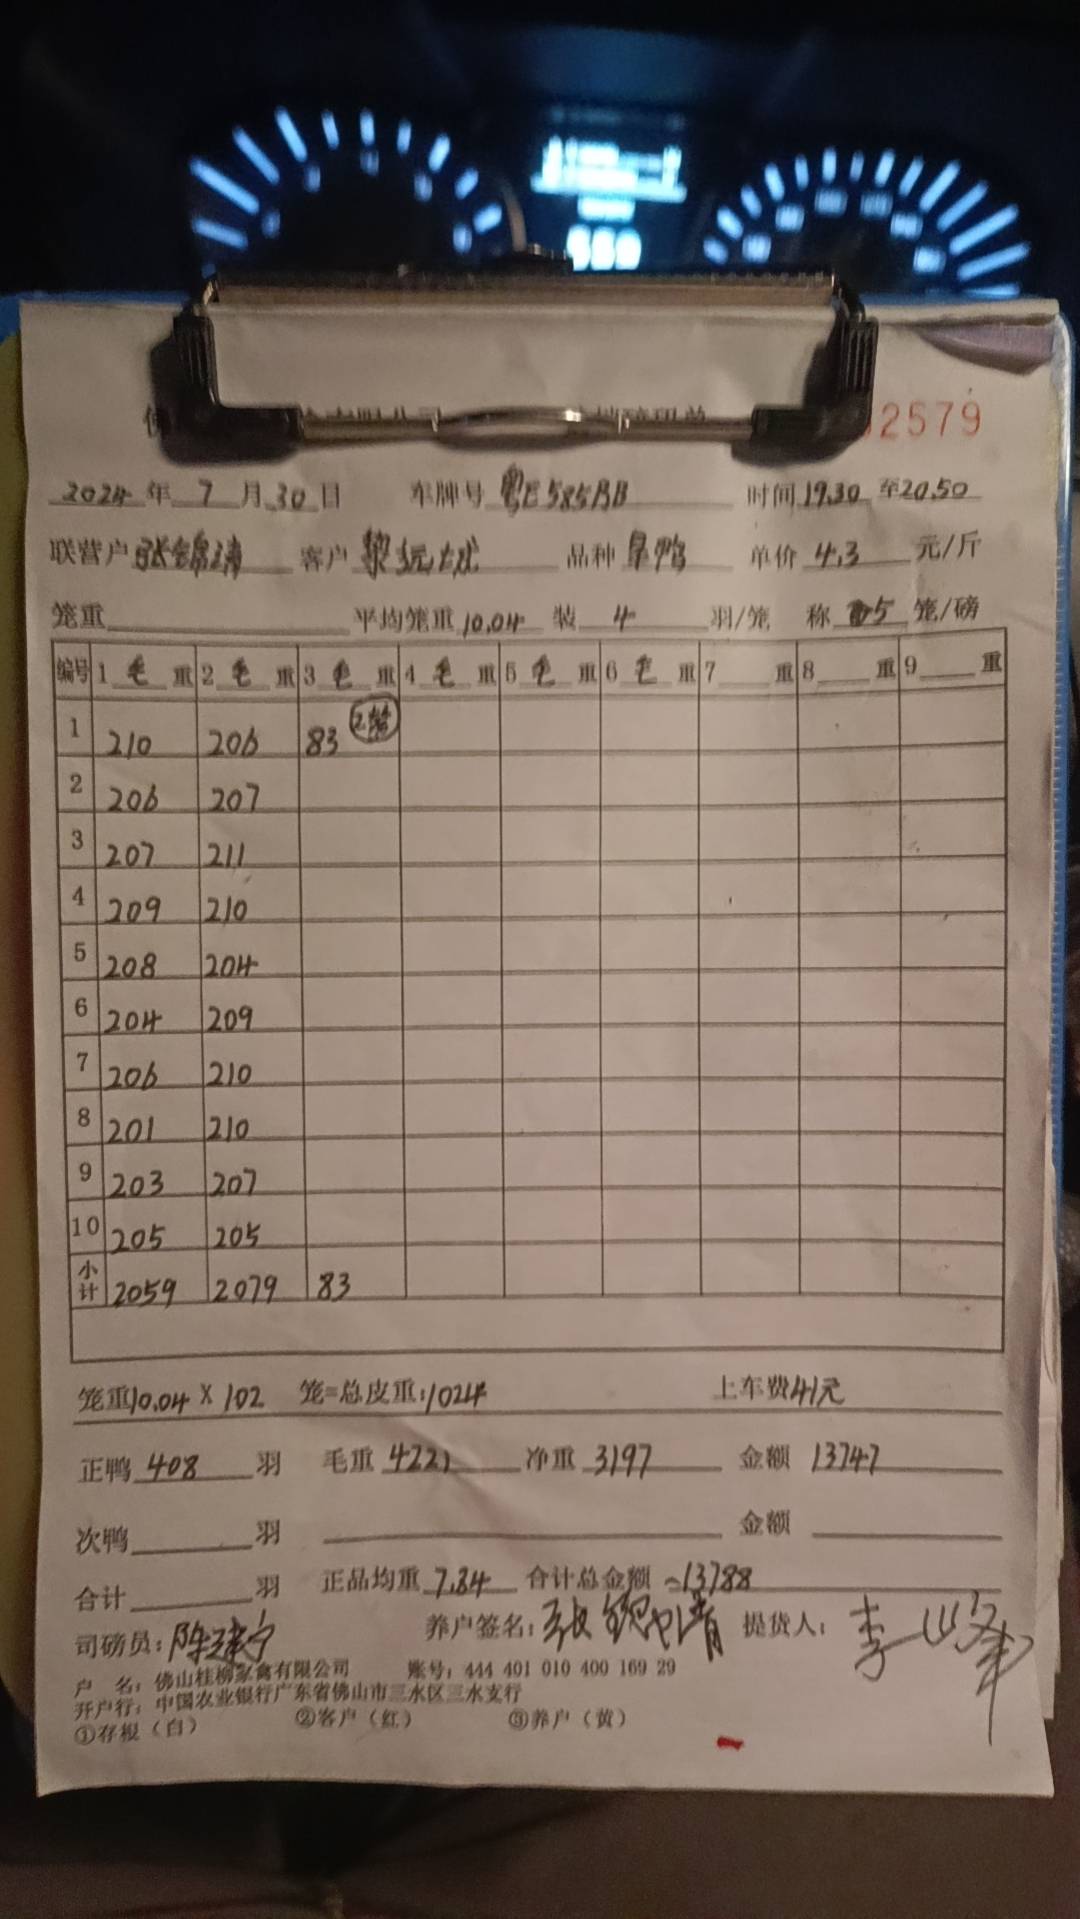 2579
2024 年 7 月 30 日 车牌号 粤E585BB 时间 19.30 至 20.50
联营户 张锦清 客户 黎 品种 阜鸭 单价 4.3 元/斤
笼重 平均笼重 10.04 装 4 羽/笼 称 5 笼/磅
编号 1 毛 重 2 毛 重 3 毛 重 4 毛 重 5 毛 重 6 毛 重 7 重 8 重 9 重
1 210 206 83 2笼
2 206 207
3 207 211
4 209 210
5 208 204
6 204 209
7 206 210
8 201 210
9 203 207
10 205 205
小计 2059 2079 83
笼重 10.04 X 102 笼=总皮重: 1024 上车费 41元
正鸭 408 羽 毛重 4221 净重 3197 金额 13747
次鸭 羽 金额
合计 羽 正品均重 7.84 合计总金额 13788
司磅员: 陈建宁 养户签名: 张锦清 提货人: 李
户 名: 佛山桂柳家禽有限公司 账号: 444 401 010 400 169 29
开户行: 中国农业银行广东省佛山市三水区三水支行
①存根（白） ②客户（红） ③养户（黄）